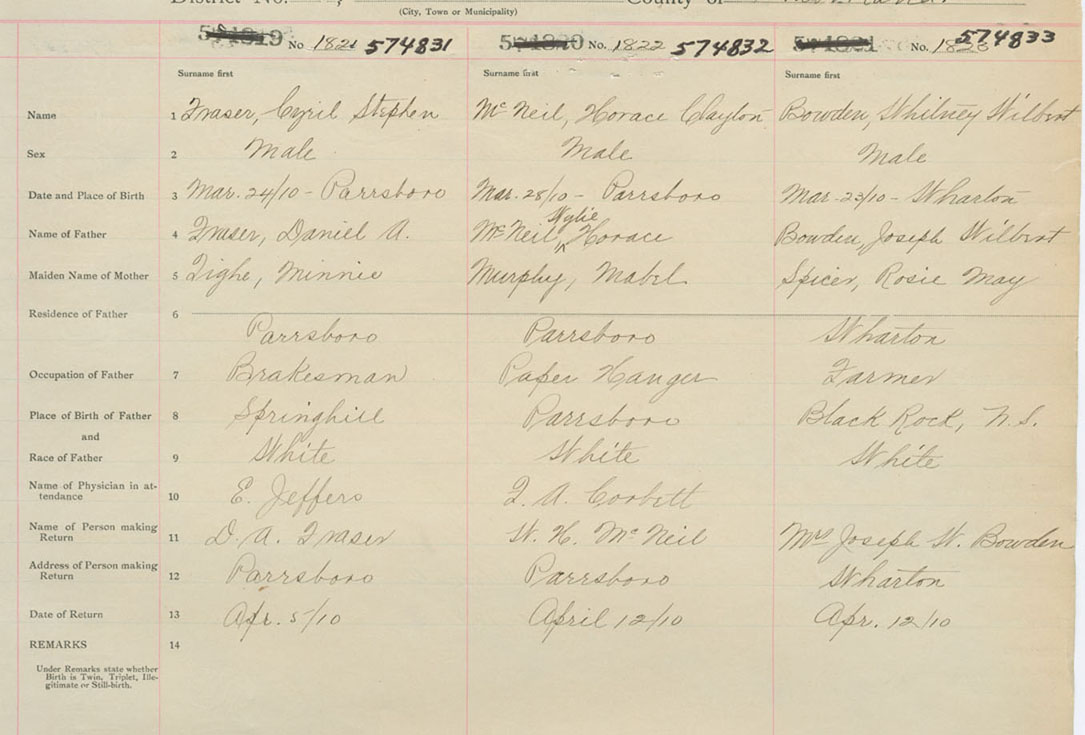 District No.
County of
(City, Town or Municipality)
No 1821 574831 No. 1822 574832 No. 574833
Surname first Surname first Surname first
Name 1 Fraser, Cyril Stephen McNeil, Horace Clayton Bowden, Whitney Wilbert
Sex 2 Male Male Male
Date and Place of Birth 3 Mar. 24/10 - Parrsboro Mar. 28/10 - Parrsboro Mar. 23/10 - Wharton
Wylie
Name of Father 4 Fraser, Daniel A. McNeil, Horace Bowden, Joseph Wilbert
Maiden Name of Mother 5 Tighe, Minnie Murphy, Mabel Spicer, Rosie May
Residence of Father 6
Parrsboro Parrsboro Wharton
Occupation of Father 7 Brakesman Paper Hanger Farmer
Place of Birth of Father 8 Springhill Parrsboro Black Rock, N.S.
and
Race of Father 9 White White White
Name of Physician in at-
tendance 10 E. Jeffers F. A. Corbett
Name of Person making
Return 11 D. A. Fraser W. H. McNeil Mrs Joseph W. Bowden
Address of Person making
Return 12 Parrsboro Parrsboro Wharton
Date of Return 13 Apr. 5/10 April 12/10 Apr. 12/10
REMARKS 14
Under Remarks state whether
Birth is Twin, Triplet, Ille-
gitimate or Still-birth.